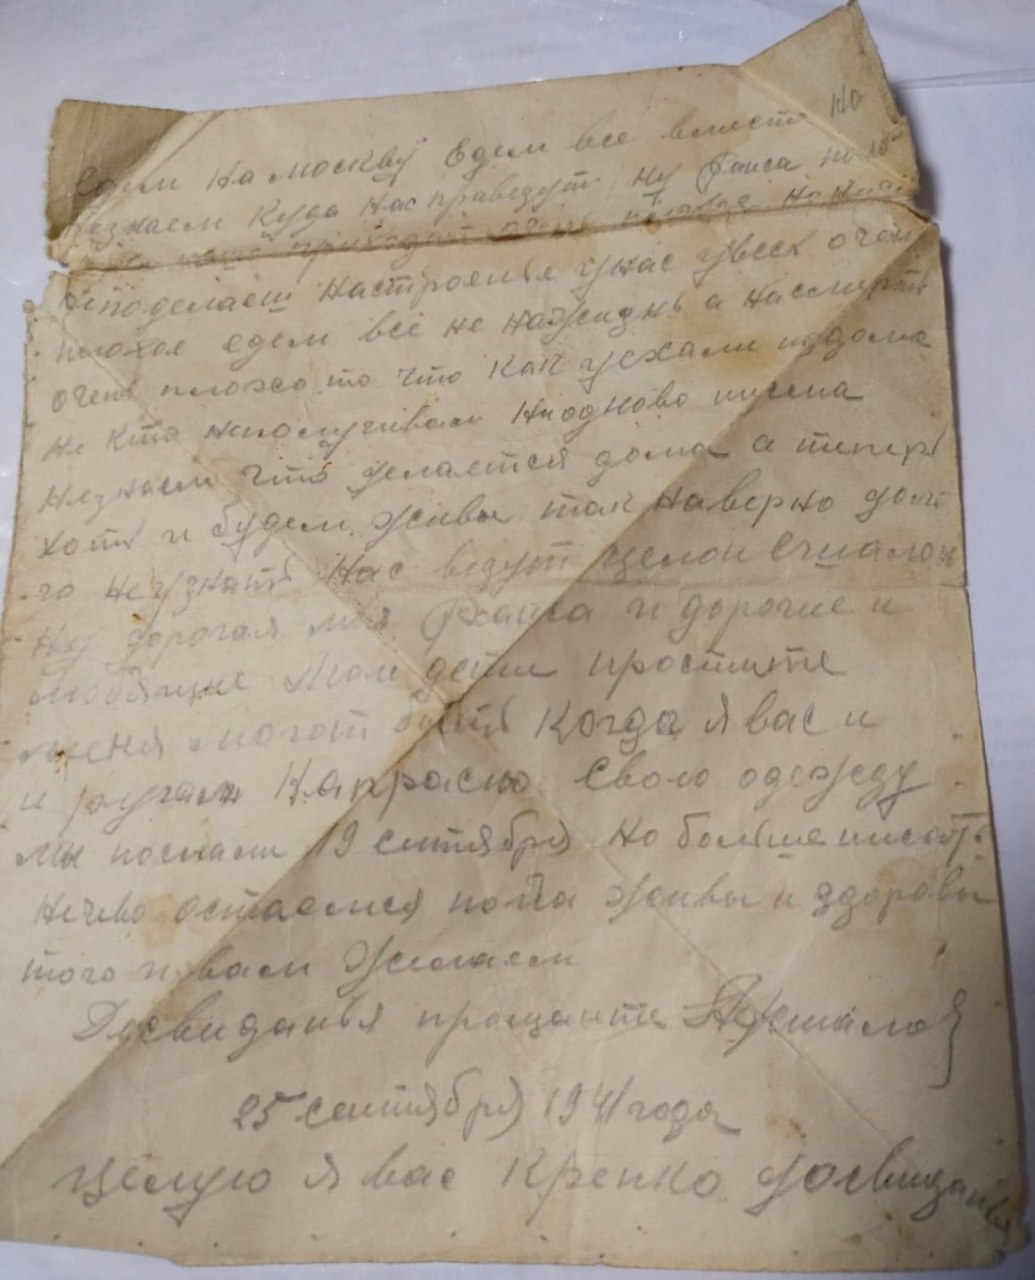 Едем на москву Едем все вместе но
незнаем куда нас праведут ну Раиса
приходит очень
неподелаеш настроенье ужас увсех очень
плохое едем все не нажизнь а насмерть
очень плохо то что как уехали издома
не кто неполучивали ниодново писма
незнаем что делается дома а типерь
хоть и будем живы так наверно долг
го неузнать Нас везут целой Ешалон
Ну дорогая моя Раиса и дорогие и
любящие мои дети простите
меня могот быть когда я вас и
и ругал Напрасно Свою одежду
мы послали 19 сентября Но больше писать
нечево остаемся пока живы и здоровы
того и вам желаем
Досвиданья прощаите
25 сентября 1941 года
целую я вас крепко досвиданья